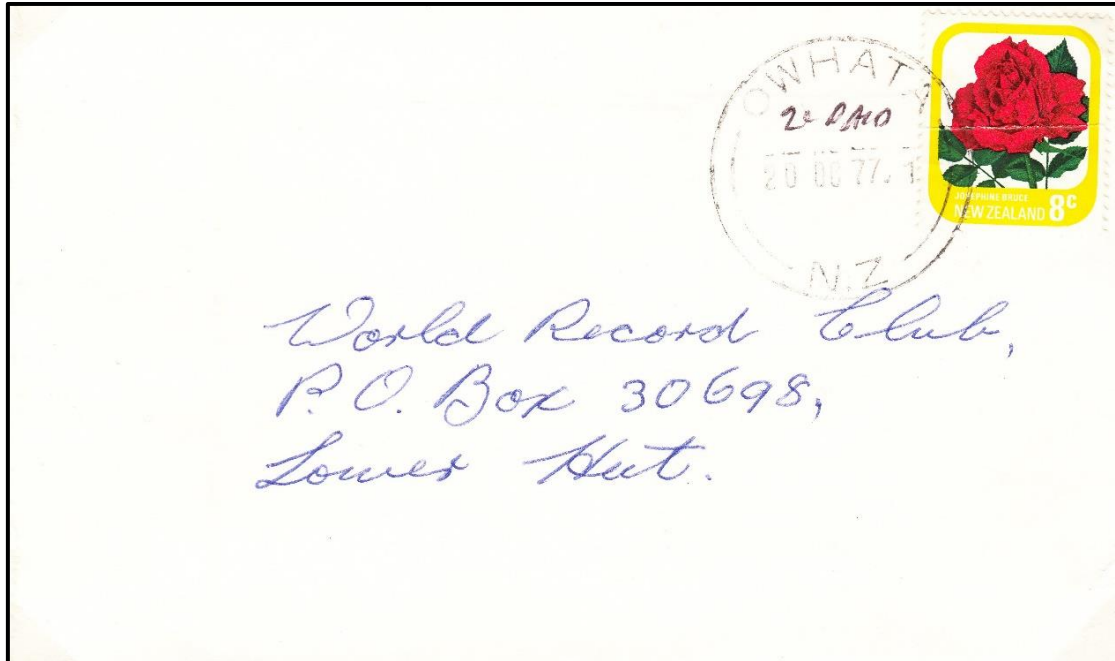 OWHATA
2c PAID
20 OC 77. 1
N.Z
JOSEPHINE BRUCE
NEW ZEALAND 8c
World Record Club,
P. O. Box 30698,
Lower Hut.